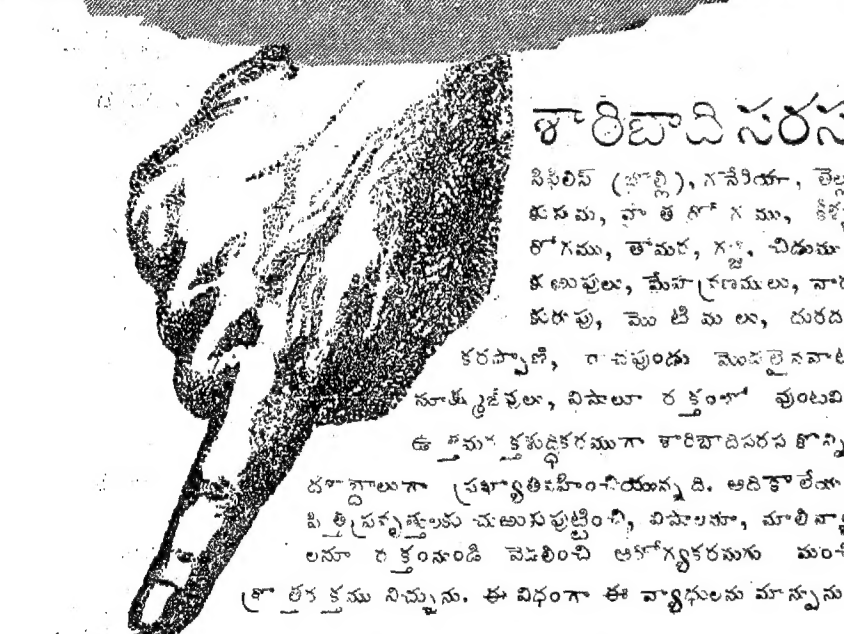 శారిబాది సరస
సిఫిలిస్ (జొల్లి), గనేరియా, తెల్ల
కుసుమ, వాతరోగము,
రోగము, తామర, గజ్జి, చిడుము
కఱుపులు, మేహవ్రణములు,
కురుపు, మొటిమలు, దురద
కరప్పాణి, రాచపుండు మొదలైనవాటి
సూక్ష్మజీవులు, విషాలూ రక్తంలో వుంటవి
ఉత్తమరక్తశుద్ధికరముగా శారిబాదిసరస కొన్ని
దశాబ్దాలుగా ప్రఖ్యాతివహించియున్నది. అది కాలేయ
పిత్తప్రవృత్తులకు చుఱుకుపుట్టించి, విషాలనూ, మాలిన్యా
లనూ రక్తంనుండి వెడలించి ఆరోగ్యకరమగు మంచి
క్రొత్తరక్తము నిచ్చును. ఈ విధంగా ఈ వ్యాధులను మాన్పును